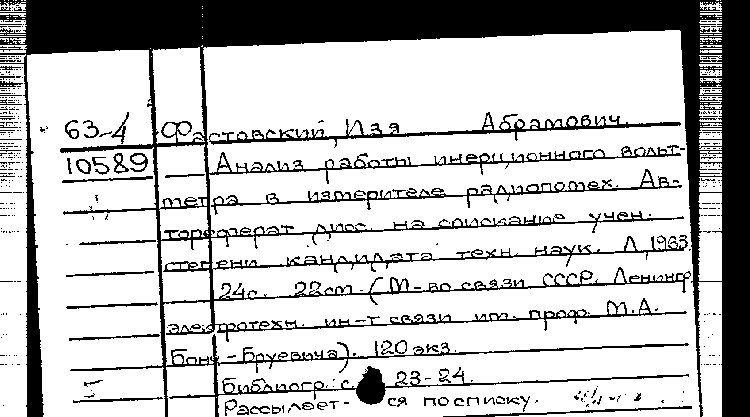 63-4 Фастовский, Изя Абрамович.
10589 Анализ работы инерционного вольт-
метра в измерителе радиопомех. Ав-
тореферат дисс. на соискание учен.
степени кандидата техн. наук. Л, 1963
24с. 22см. (М-во связи СССР. Ленингр.
электротехн. ин-т связи им. проф. М.А.
Бонч-Бруевича). 120 экз.
Библиогр.: с. 23-24.
Рассылает-ся по списку.